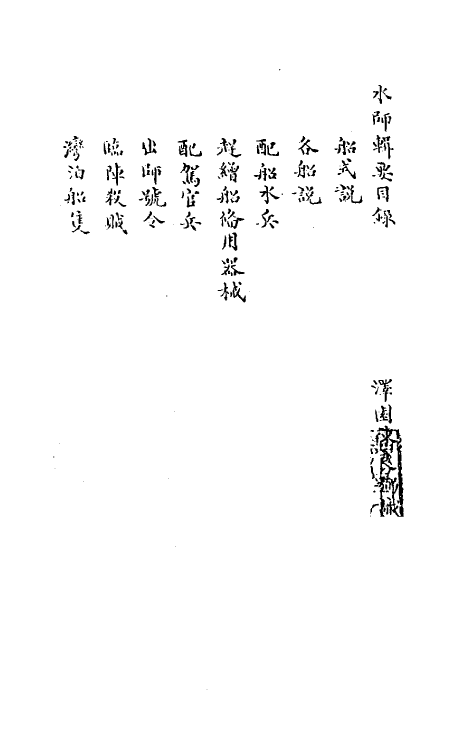 水師輯要目錄
澤園
船式説
各船説
配船水兵
趕繒船俻用器械
配駕官兵
出師號令
臨陣殺賊
灣泊船隻